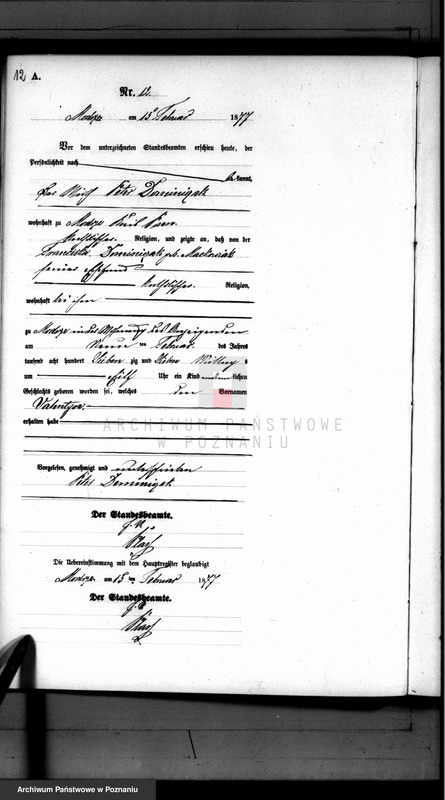 12 A.
Nr. 12.
am 15 Februar 1877
Vor dem unterzeichneten Standesbeamten erschien heute, der
Persönlichkeit nach
be kannt,
Der Peter Dominizak
wohnhaft zu
katholischer Religion, und zeigte an, daß von der
Dominizak geb.
seiner Ehefrau
katholischer Religion,
wohnhaft bei ihm
zu in der Wohnung des Anzeigenden
am neun ten Februar des Jahres
tausend acht hundert sieben zig und sieben
um Uhr ein Kind lichen
Geschlechts geboren worden sei, welches den Vornamen
Valentyn
erhalten habe
ARCHIWUM PAŃSTWOWE
W POZNANIU
Vorgelesen, genehmigt und unterschrieben
Peter Dominizak
Der Standesbeamte.
Die Uebereinstimmung mit dem Hauptregister beglaubigt
am 15 ten Februar 1877
Der Standesbeamte.
Archiwum Państwowe w Poznaniu